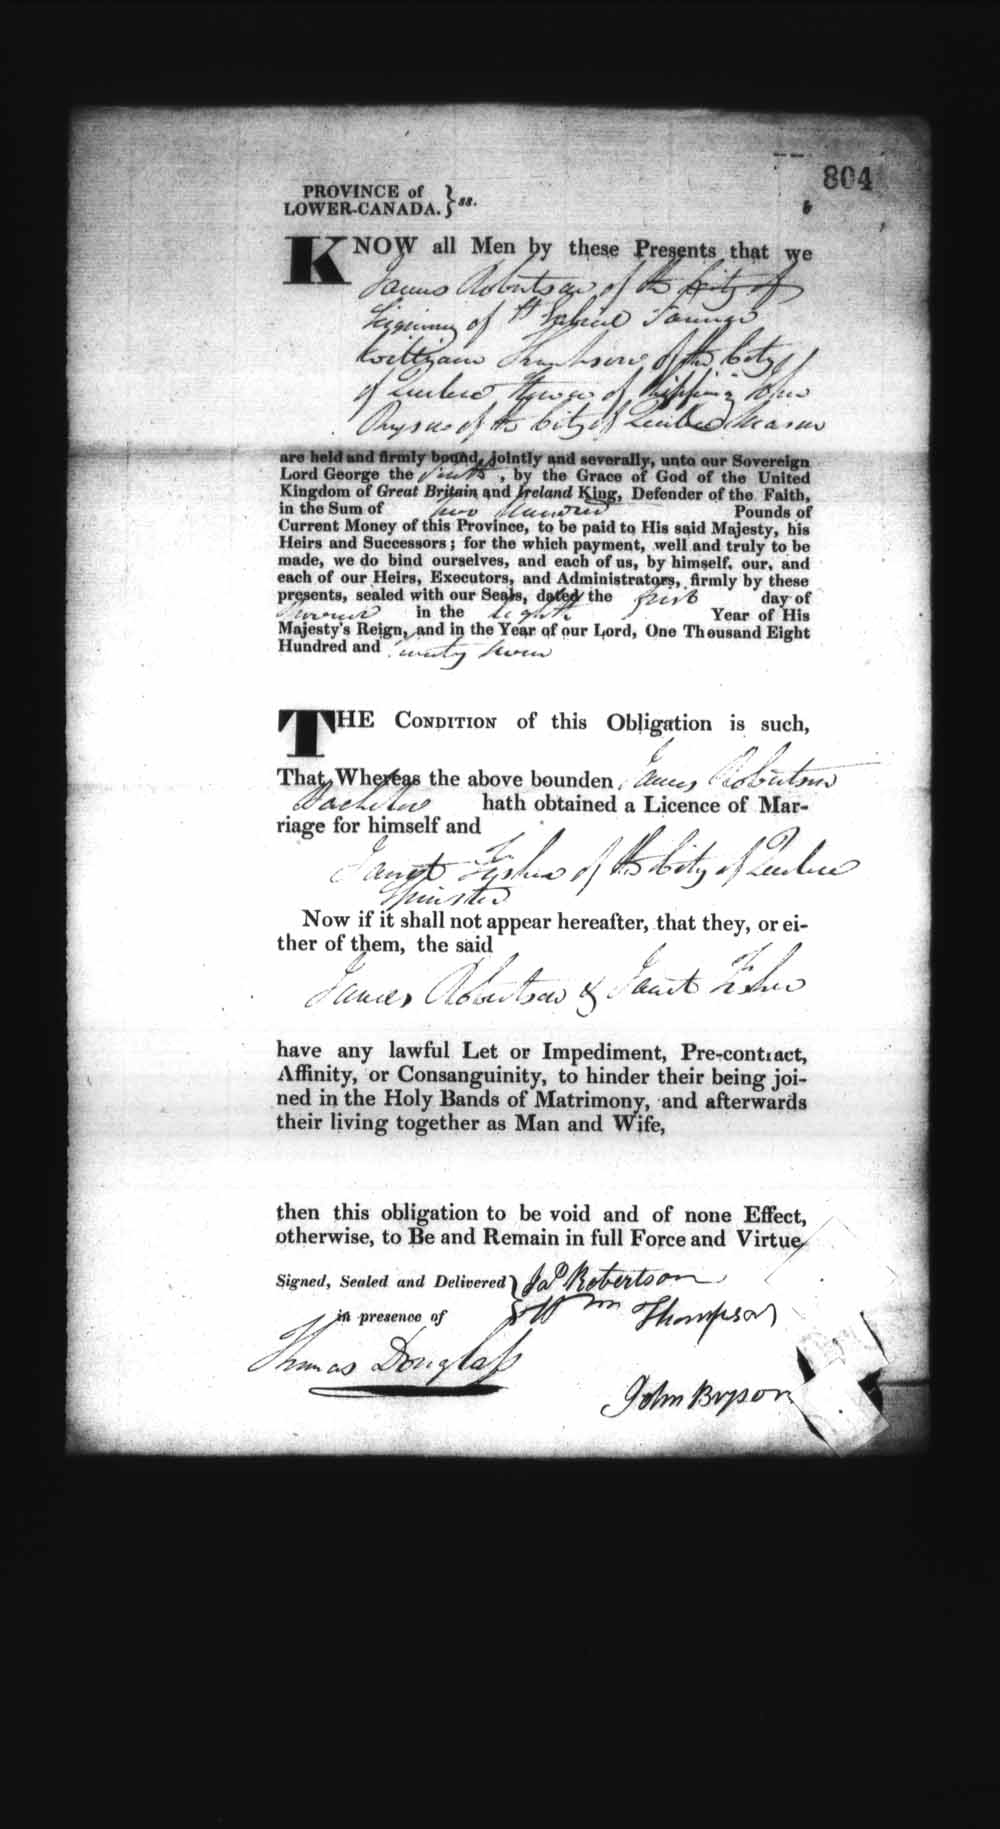 804
PROVINCE of
LOWER-CANADA. } ss.
KNOW all Men by these Presents that we
James Robertson of the City of
Seigniory of St Gabriel Farmer
William Thompson of the City
of Quebec of Shipping John
Bryson of the City of Quebec Mason
are held and firmly bound, jointly and severally, unto our Sovereign
Lord George the , by the Grace of God of the United
Kingdom of Great Britain and Ireland King, Defender of the Faith,
in the Sum of Two Hundred Pounds of
Current Money of this Province, to be paid to His said Majesty, his
Heirs and Successors; for the which payment, well and truly to be
made, we do bind ourselves, and each of us, by himself, our, and
each of our Heirs, Executors, and Administrators, firmly by these
presents, sealed with our Seals, dated the first day of
in the Eighth Year of His
Majesty's Reign, and in the Year of our Lord, One Thousand Eight
Hundred and Twenty Seven
THE CONDITION of this Obligation is such,
That, Whereas the above bounden James Robertson
Bachelor hath obtained a Licence of Mar-
riage for himself and
Janet Fisher of the City of Quebec
Spinster
Now if it shall not appear hereafter, that they, or ei-
ther of them, the said
James Robertson & Janet Fisher
have any lawful Let or Impediment, Pre-contract,
Affinity, or Consanguinity, to hinder their being joi-
ned in the Holy Bands of Matrimony, and afterwards
their living together as Man and Wife,
then this obligation to be void and of none Effect,
otherwise, to Be and Remain in full Force and Virtue
Signed, Sealed and Delivered } Jas Robertson
in presence of } Wm Thompson
Thomas Douglass
John Bryson